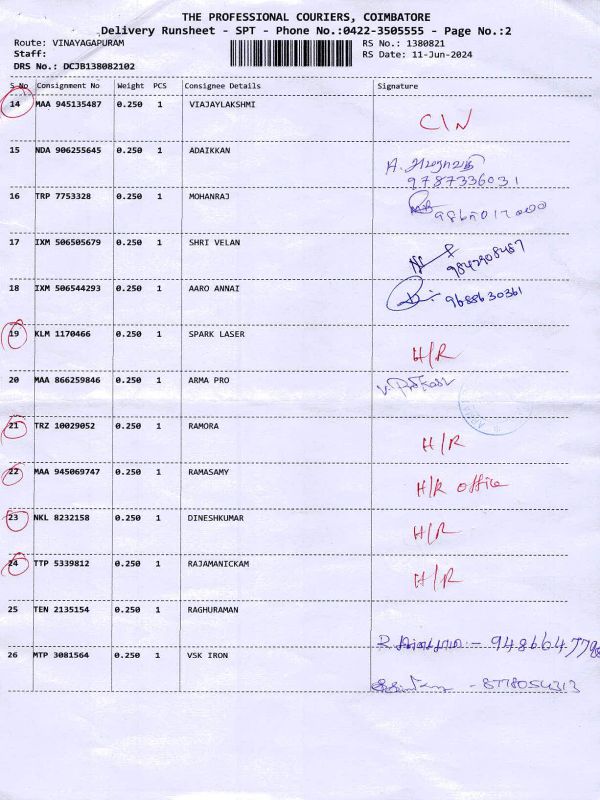 THE PROFESSIONAL COURIERS, COIMBATORE
Delivery Runsheet - SPT - Phone No.:0422-3505555 - Page No.:2
Route: VINAYAGAPURAM
RS No.: 1380821
Staff:
RS Date: 11-Jun-2024
DRS No.: DCJB138082102
S No Consignment No Weight PCS Consignee Details Signature
14 MAA 945135487 0.250 1 VIAJAYLAKSHMI
C/N
15 NDA 906255645 0.250 1 ADAIKKAN
A.
9787336031
16 TRP 7753328 0.250 1 MOHANRAJ
17 IXM 506505679 0.250 1 SHRI VELAN
9842908487
18 IXM 506544293 0.250 1 AARO ANNAI
9688630361
19 KLM 1170466 0.250 1 SPARK LASER
H/R
20 MAA 866259846 0.250 1 ARMA PRO
21 TRZ 10029052 0.250 1 RAMORA
H/R
22 MAA 945069747 0.250 1 RAMASAMY
H/R office
23 NKL 8232158 0.250 1 DINESHKUMAR
H/R
24 TTP 5339812 0.250 1 RAJAMANICKAM
H/R
25 TEN 2135154 0.250 1 RAGHURAMAN
R
26 MTP 3081564 0.250 1 VSK IRON
- 8778054313